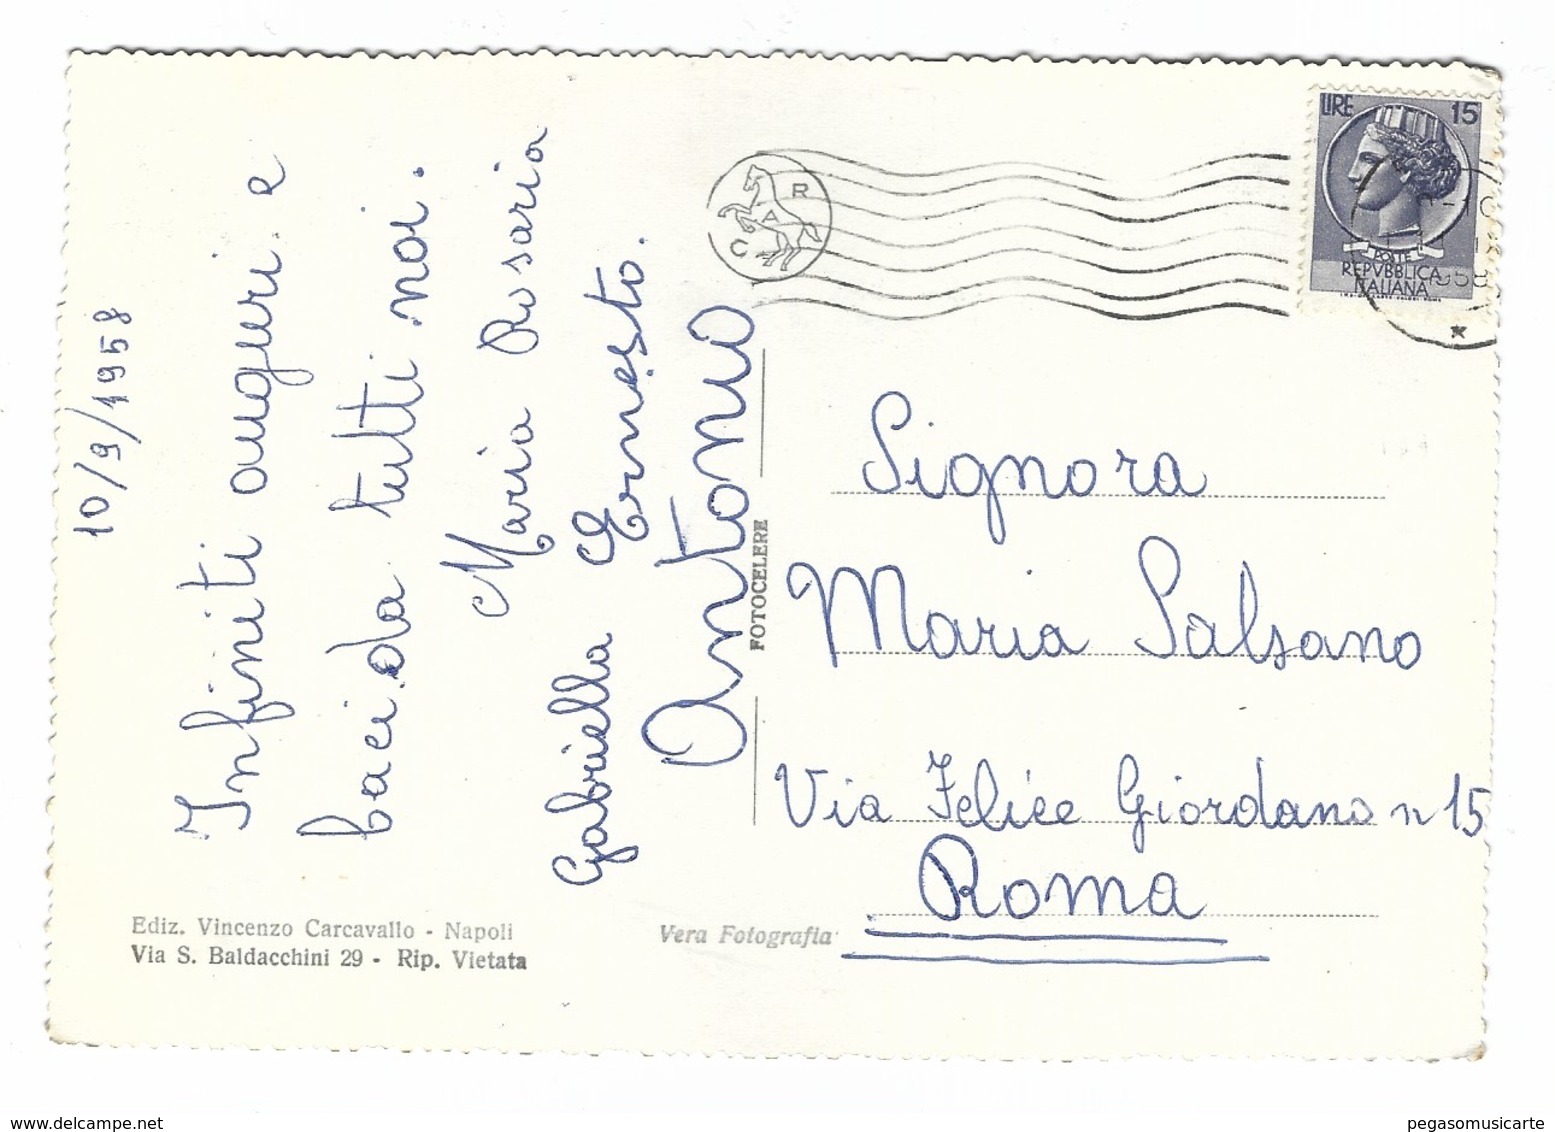 10/9/1958
Infiniti auguri e
baci da tutti noi.
Maria Rosaria
Gabriella Ernesto.
Antonio
Ediz. Vincenzo Carcavallo - Napoli
Via S. Baldacchini 29 - Rip. Vietata
Vera Fotografia
FOTOCELERE
C A R
LIRE 15
POSTE
REPVBBLICA
ITALIANA
Signora
Maria Salsano
Via Felice Giordano n 15
Roma
www.delcampe.net
pegasomusicarte